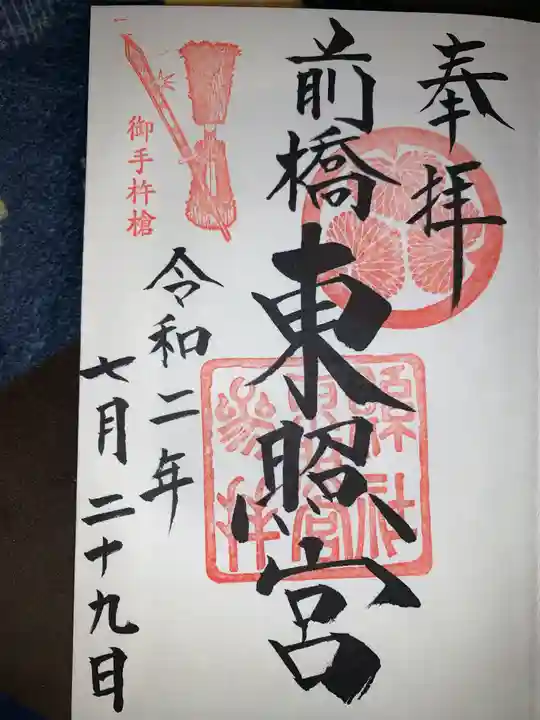 奉拝
前橋東照宮
縣社
東照宮
参拝
御手杵槍
令和二年
七月二十九日